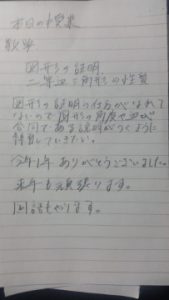 本日の授業
数学
図形の証明
二等辺三角形の性質
図形の証明の仕方がなれて
ないので図形の角度や辺が
合同である説明がつくように
練習していきたい。
今年1年ありがとうございました。
来年も頑張ります。
国語もやります。